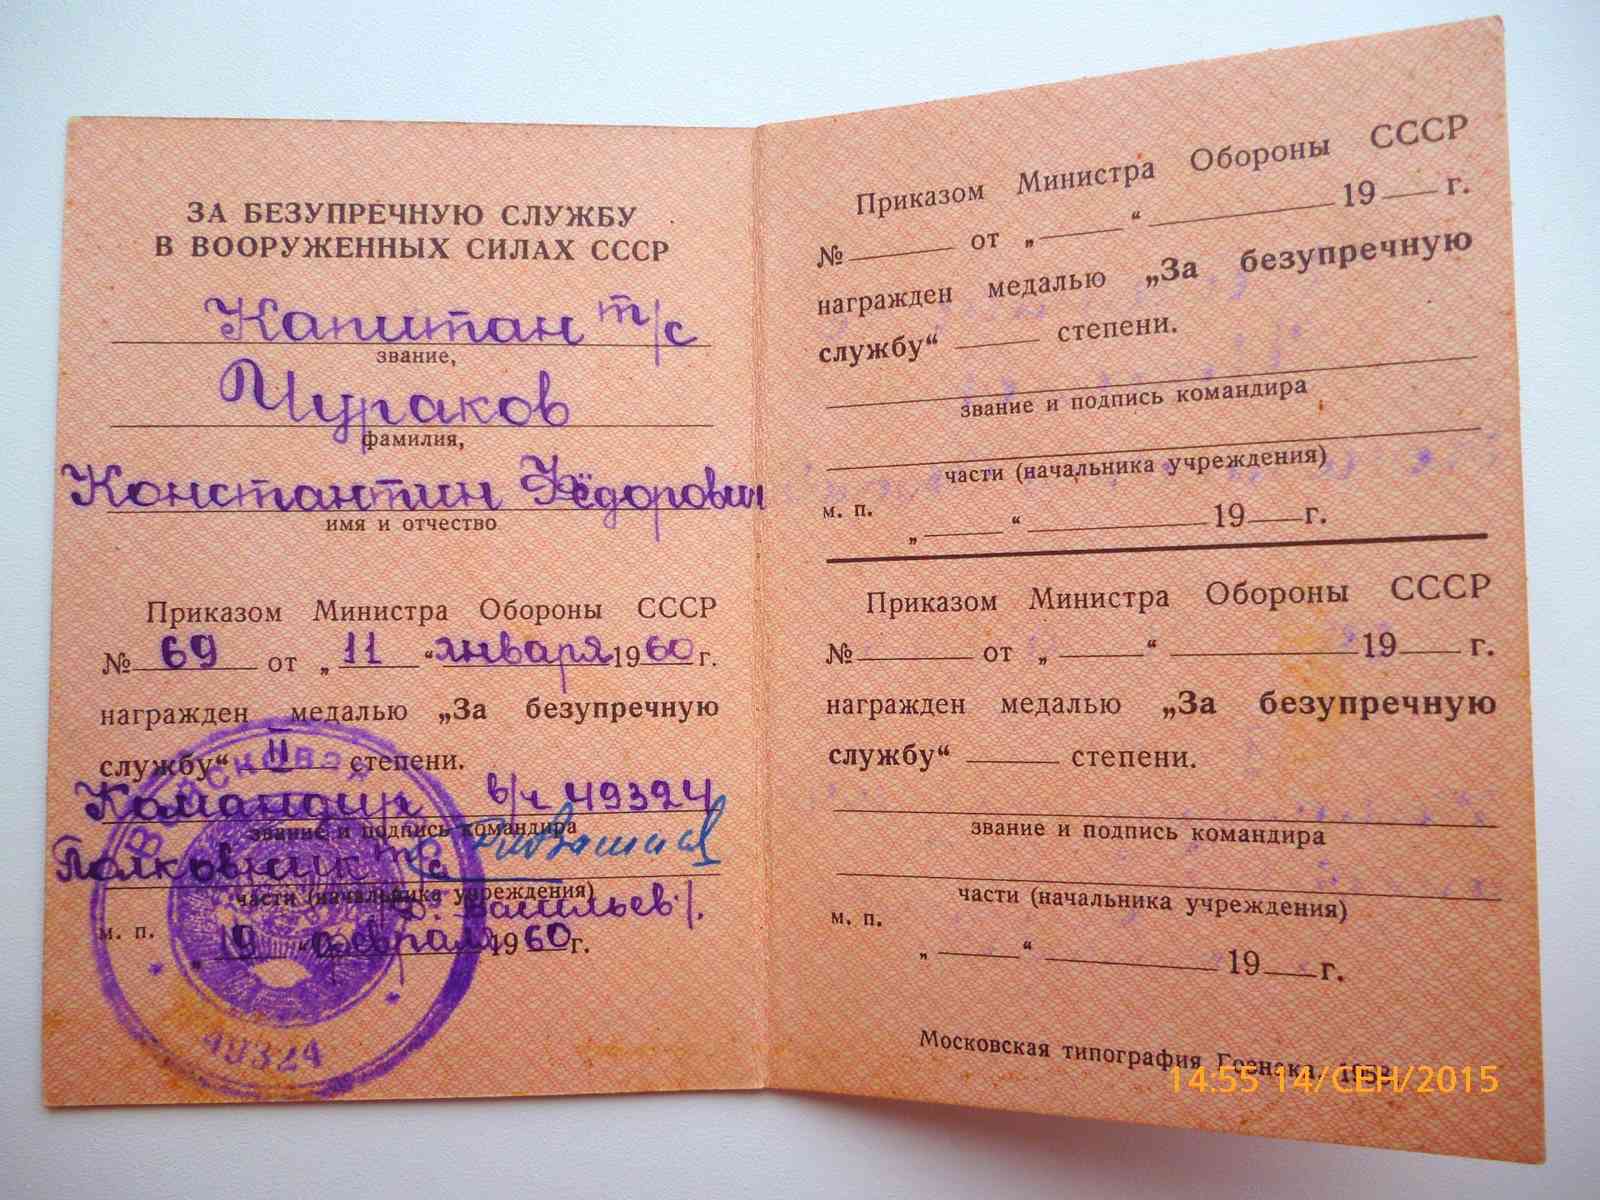 ЗА БЕЗУПРЕЧНУЮ СЛУЖБУ
В ВООРУЖЕННЫХ СИЛАХ СССР
Капитан т/с
звание,
фамилия,
Константин Фёдорович
имя и отчество
Приказом Министра Обороны СССР
№ 69 от „ 11 “ января 1960 г.
награжден медалью „За безупречную
службу“ II степени.
Командир в/ч 49324
звание и подпись командира
Полковник т/с
части (начальника учреждения)
Васильев/.
м. п.
„ 19 “ февраля 1960 г.
49324
Приказом Министра Обороны СССР
№ от „ “ 19 г.
награжден медалью „За безупречную
службу“ степени.
звание и подпись командира
части (начальника учреждения)
м. п.
„ “ 19 г.
Приказом Министра Обороны СССР
№ от „ “ 19 г.
награжден медалью „За безупречную
службу“ степени.
звание и подпись командира
части (начальника учреждения)
м. п.
„ “ 19 г.
Московская типография Гознака.
14:55 14/СЕН/2015